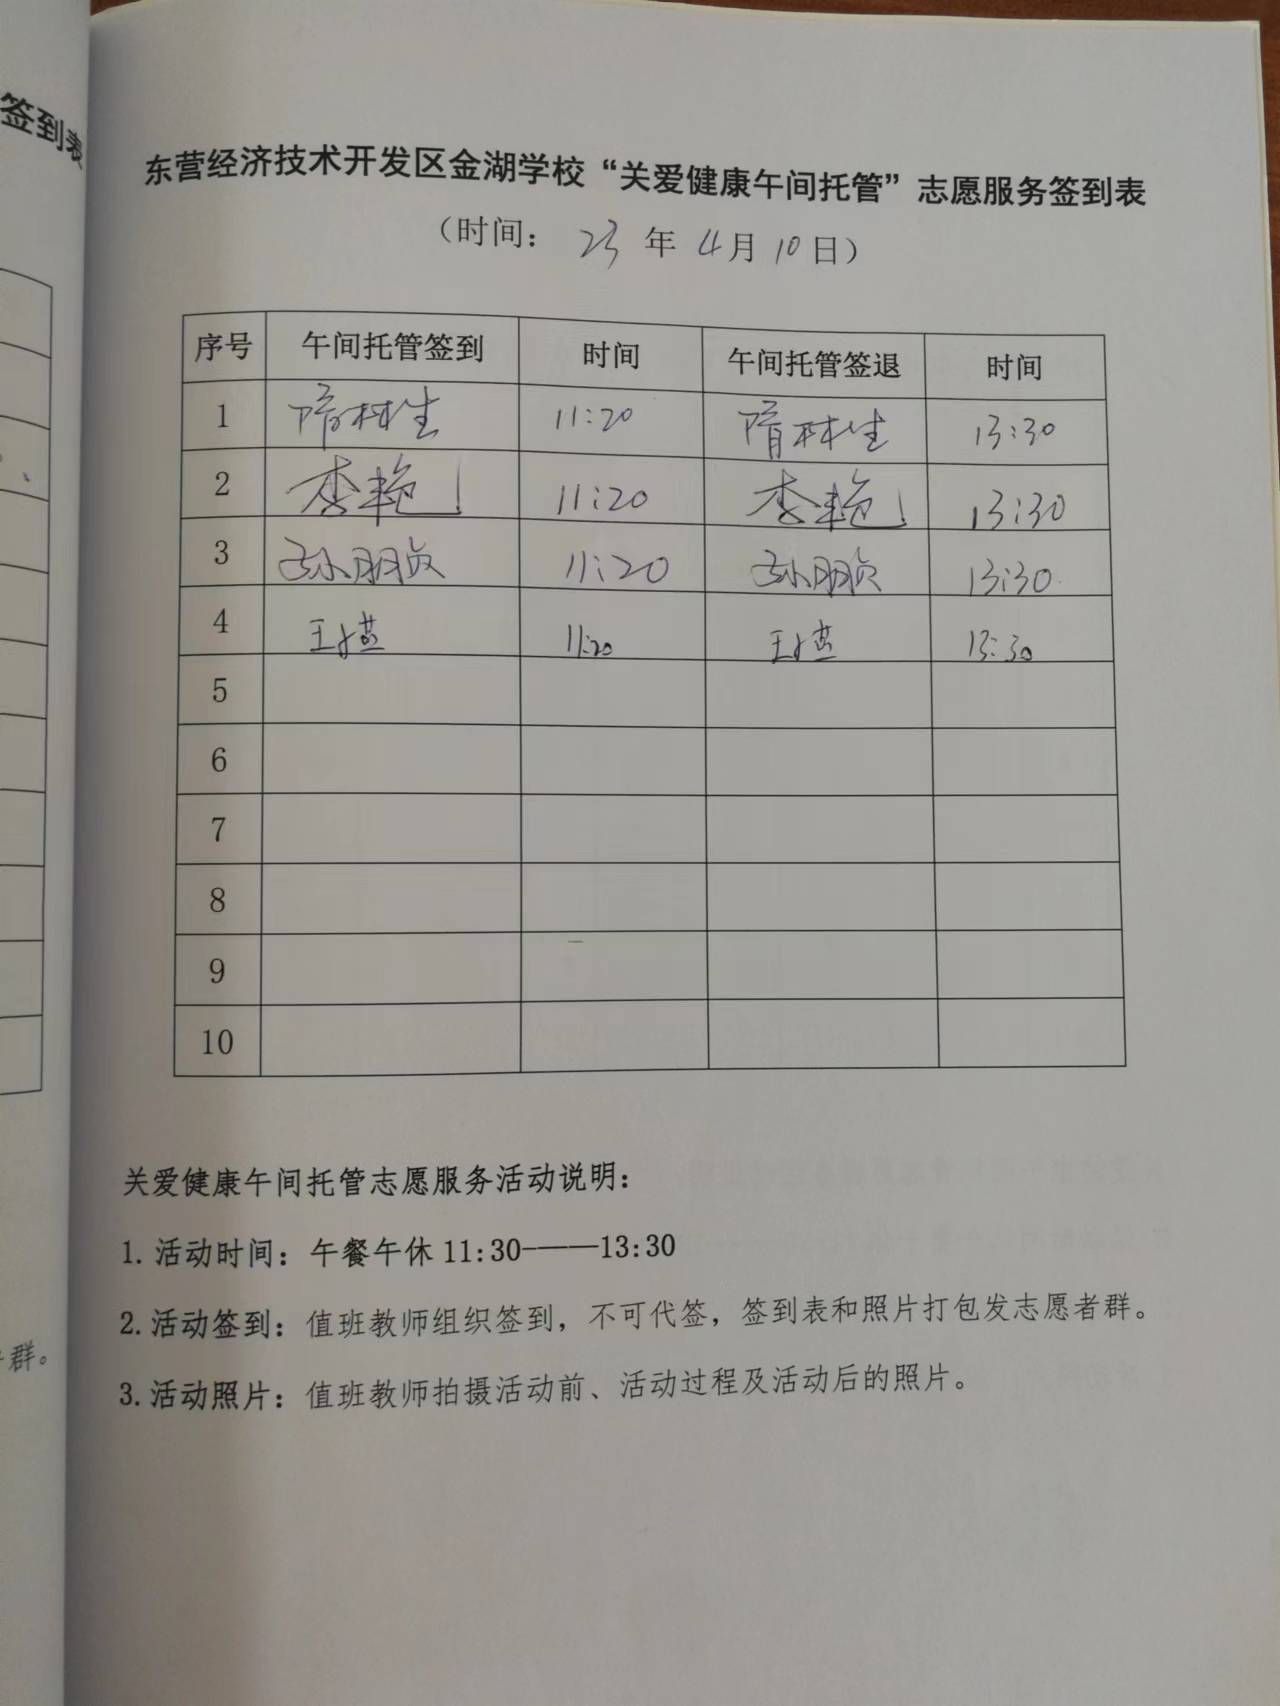 签到表
东营经济技术开发区金湖学校“关爱健康午间托管”志愿服务签到表
（时间： 23 年 4 月 10 日）
序号 午间托管签到 时间 午间托管签退 时间
1 隋林生 11:20 隋林生 13:30
2 李艳 11:20 李艳 13:30
3 孙朋贞 11:20 孙朋贞 13:30
4 王 11:20 王 13:30
5
6
7
8
9
10
关爱健康午间托管志愿服务活动说明：
1.活动时间：午餐午休 11:30———13:30
2.活动签到：值班教师组织签到，不可代签，签到表和照片打包发志愿者群。
3.活动照片：值班教师拍摄活动前、活动过程及活动后的照片。
群。